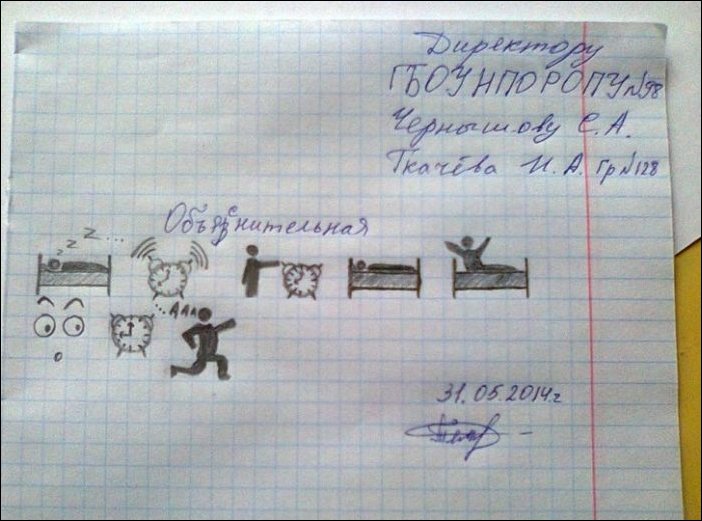 Директору
ГБОУНПОРОПУ№98
Чернышову С.А.
Ткачёва И.А. гр№128
Объяснительная
z z z z...
...ААА
31.05.2014г